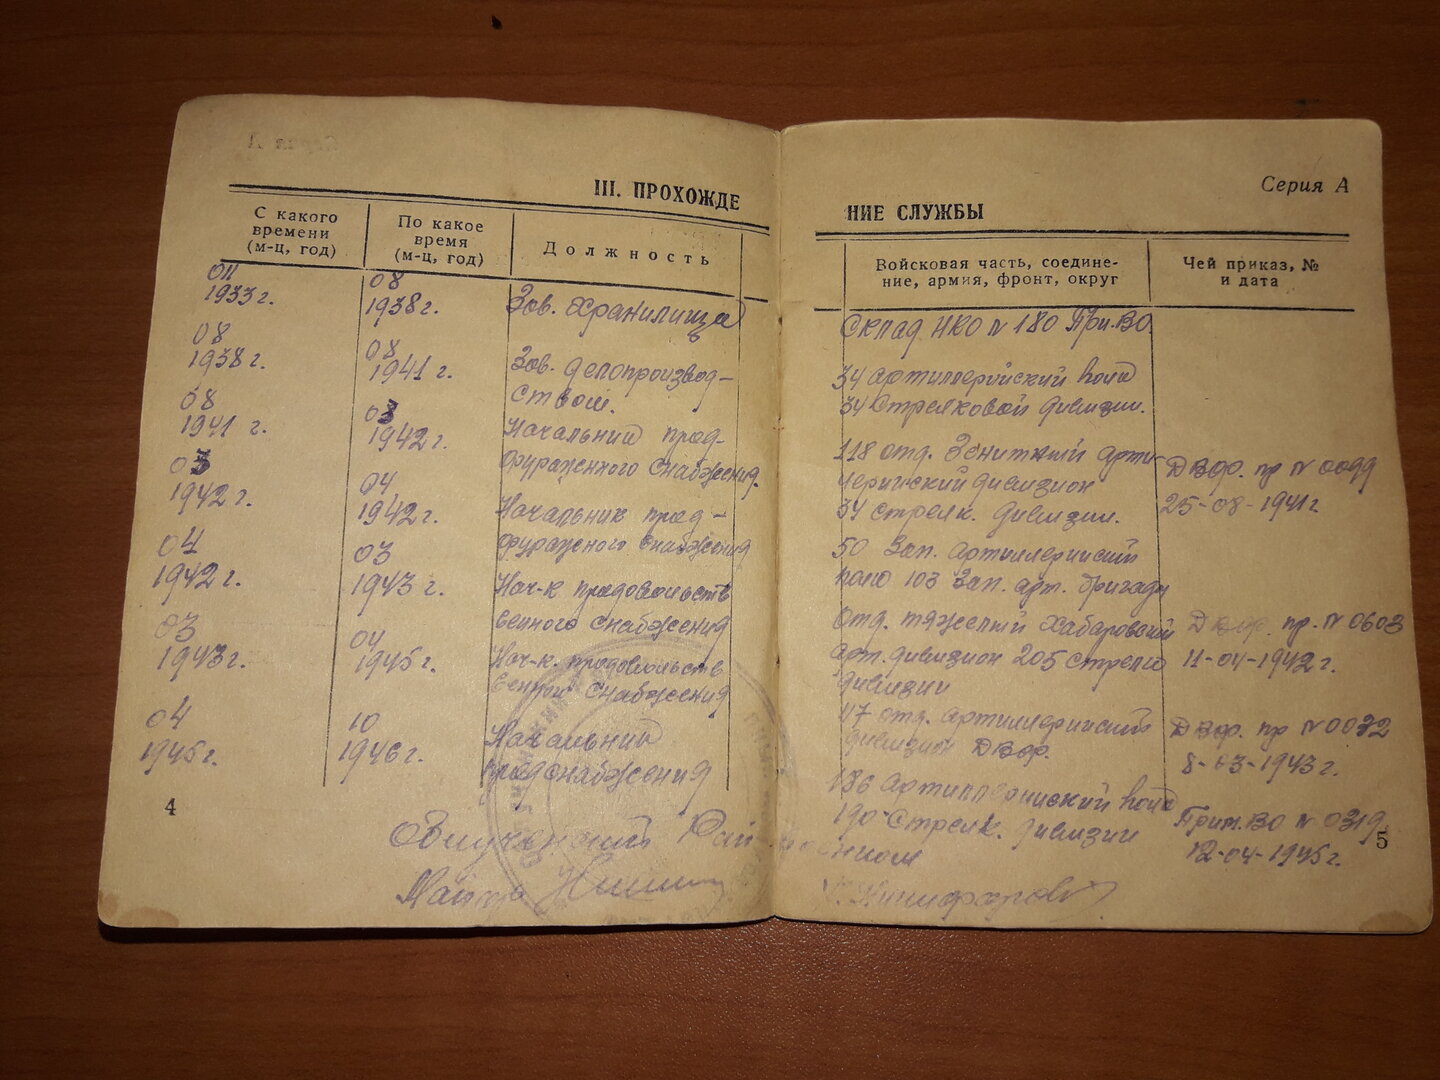 Серия А
III. ПРОХОЖДЕ
НИЕ СЛУЖБЫ
С какого
времени
(м-ц, год)
По какое
время
(м-ц, год)
Должность
Войсковая часть, соедине-
ние, армия, фронт, округ
Чей приказ, №
и дата
1933 г.
08
1938 г.
Зав. хранилища
Склад НКО № 180 При.ВО
08
1938 г.
08
1941 г.
Зав. делопроизвод-
ством.
34 артиллерийский полк
34 Стрелковой дивизии.
08
1941 г.
03
1942 г.
Начальник прод-
фуражного снабжения.
118 отд. Зенитный арти-
лерийский дивизион
34 стрелк. дивизии.
ДВфр. пр № 0099
25-08-1941 г
03
1942 г.
04
1942 г.
Начальник прод-
фуражного снабжения
50 Зап. артиллерийский
полк 103 Зап. арт. бригады
04
1942 г.
03
1943 г.
Нач-к продовольств
венного снабжения
отд. тяжелый Хабаровский
арт. дивизион 205 стрелко
дивизии
ДВфр. пр. № 0603
11-04-1942 г.
03
1943 г.
04
1945 г.
Нач-к. продовольств
венного снабжения
47 отд. артиллерийский
дивизион ДВфр.
ДВфр. пр № 0032
8-03-1943 г.
04
1945 г.
10
1946 г.
Начальник
продснабжения
186 артиллерийский полк
190 Стрелк. дивизии
Прим.ВО № 0319
12-04-1945 г.
4
5
Майор